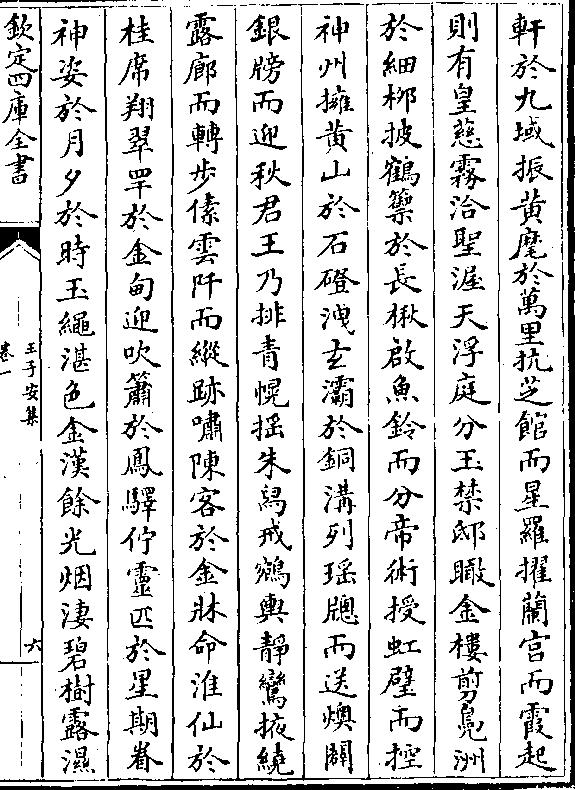 軒於九域振黄麾於萬里抗芝館而星羅擢蘭宫而霞起
則有皇慈霧洽聖渥天浮庭分玉禁邸瞰金樓剪鳧洲
於細柳披鶴籞於長楸啟魚鈐而分帝術授虹璧而控
神州擁黄山於石磴洩玄灞於銅溝列瑶牕而送燠闢
銀牓而迎秋君王乃排青幌摇朱舄戒鵷輿靜鸞掖繞
露廊而轉步傃雲阡而縱跡嘯陳客於金牀命淮仙於
桂席翔翠䍐於金甸迎吹簫於鳳驛佇靈匹於星期眷
神姿於月夕於時玉繩湛色金漢餘光烟淒碧樹露濕
欽定四庫全書
王子安集
卷一
六